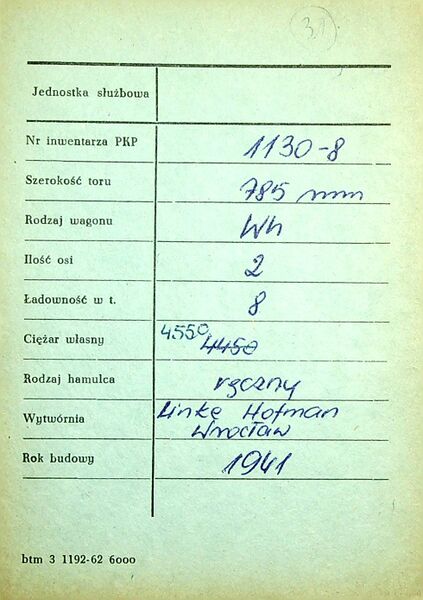 31
Jednostka służbowa
Nr inwentarza PKP 1130-8
Szerokość toru 785 mm
Rodzaj wagonu Wh
Ilość osi 2
Ładowność w t. 8
Ciężar własny 4550 4450
Rodzaj hamulca ręczny
Wytwórnia Linke Hofman
Wrocław
Rok budowy 1941
btm 3 1192-62 6000